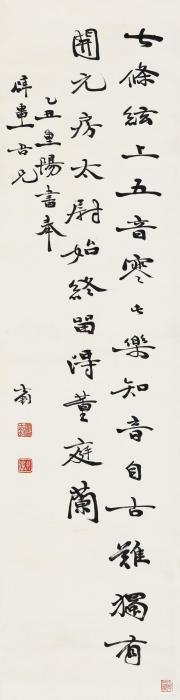 七條絃上五音寒此樂知音自古難獨有
開元房太尉始終留得董庭蘭
乙丑重陽書奉
辟畺吾兄